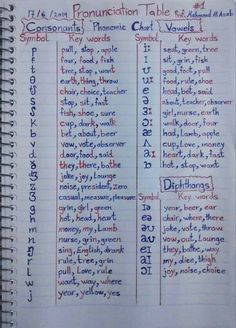 17/6/2019 Pronunciation Table #1
Prof. Mohammed
Consonants Phonemic Chart Vowels
Symbol Key words
p pull, stop, apple
f four, food, fish
t tree, stop, want
θ earth, thing, throw
tʃ chair, choice, teacher
s stop, sit, fast
ʃ fish, shoe, sure
k cup, dark, walk
b bet, about, beer
v vow, vote, observer
d door, food, said
ð they, there, bathe
dʒ joke, joy, lounge
z noise, president, zero
ʒ casual, measure, pleasure
g grin, girl, green
h hot, head, heart
m money, my, Lamb
n nurse, grin, green
ŋ sing, English, drunk
r rule, tree, grin
l pull, Love, rule
w want, way, where
j year, yellow, yes
Symbol Key words
ɪ: seat, green, tree
ɪ sit, grin, fish
ʊ good, foot, pull
u: food, rule, shoe
e head, bet, said
ə about, teacher, observer
ɜ: girl, nurse, earth
ɔ: walk, door, four
æ had, lamb, apple
ʌ cup, Love, money
ɑ: heart, dark, fast
ɒ hot, stop, want
Diphthongs
Symbol Key words
ɪə year, beer, ear
eə chair, where, there
əʊ joke, vote, throw
aʊ vow, out, Lounge
eɪ they, bathe, way
aɪ my, dice, thigh
ɔɪ joy, noise, choice